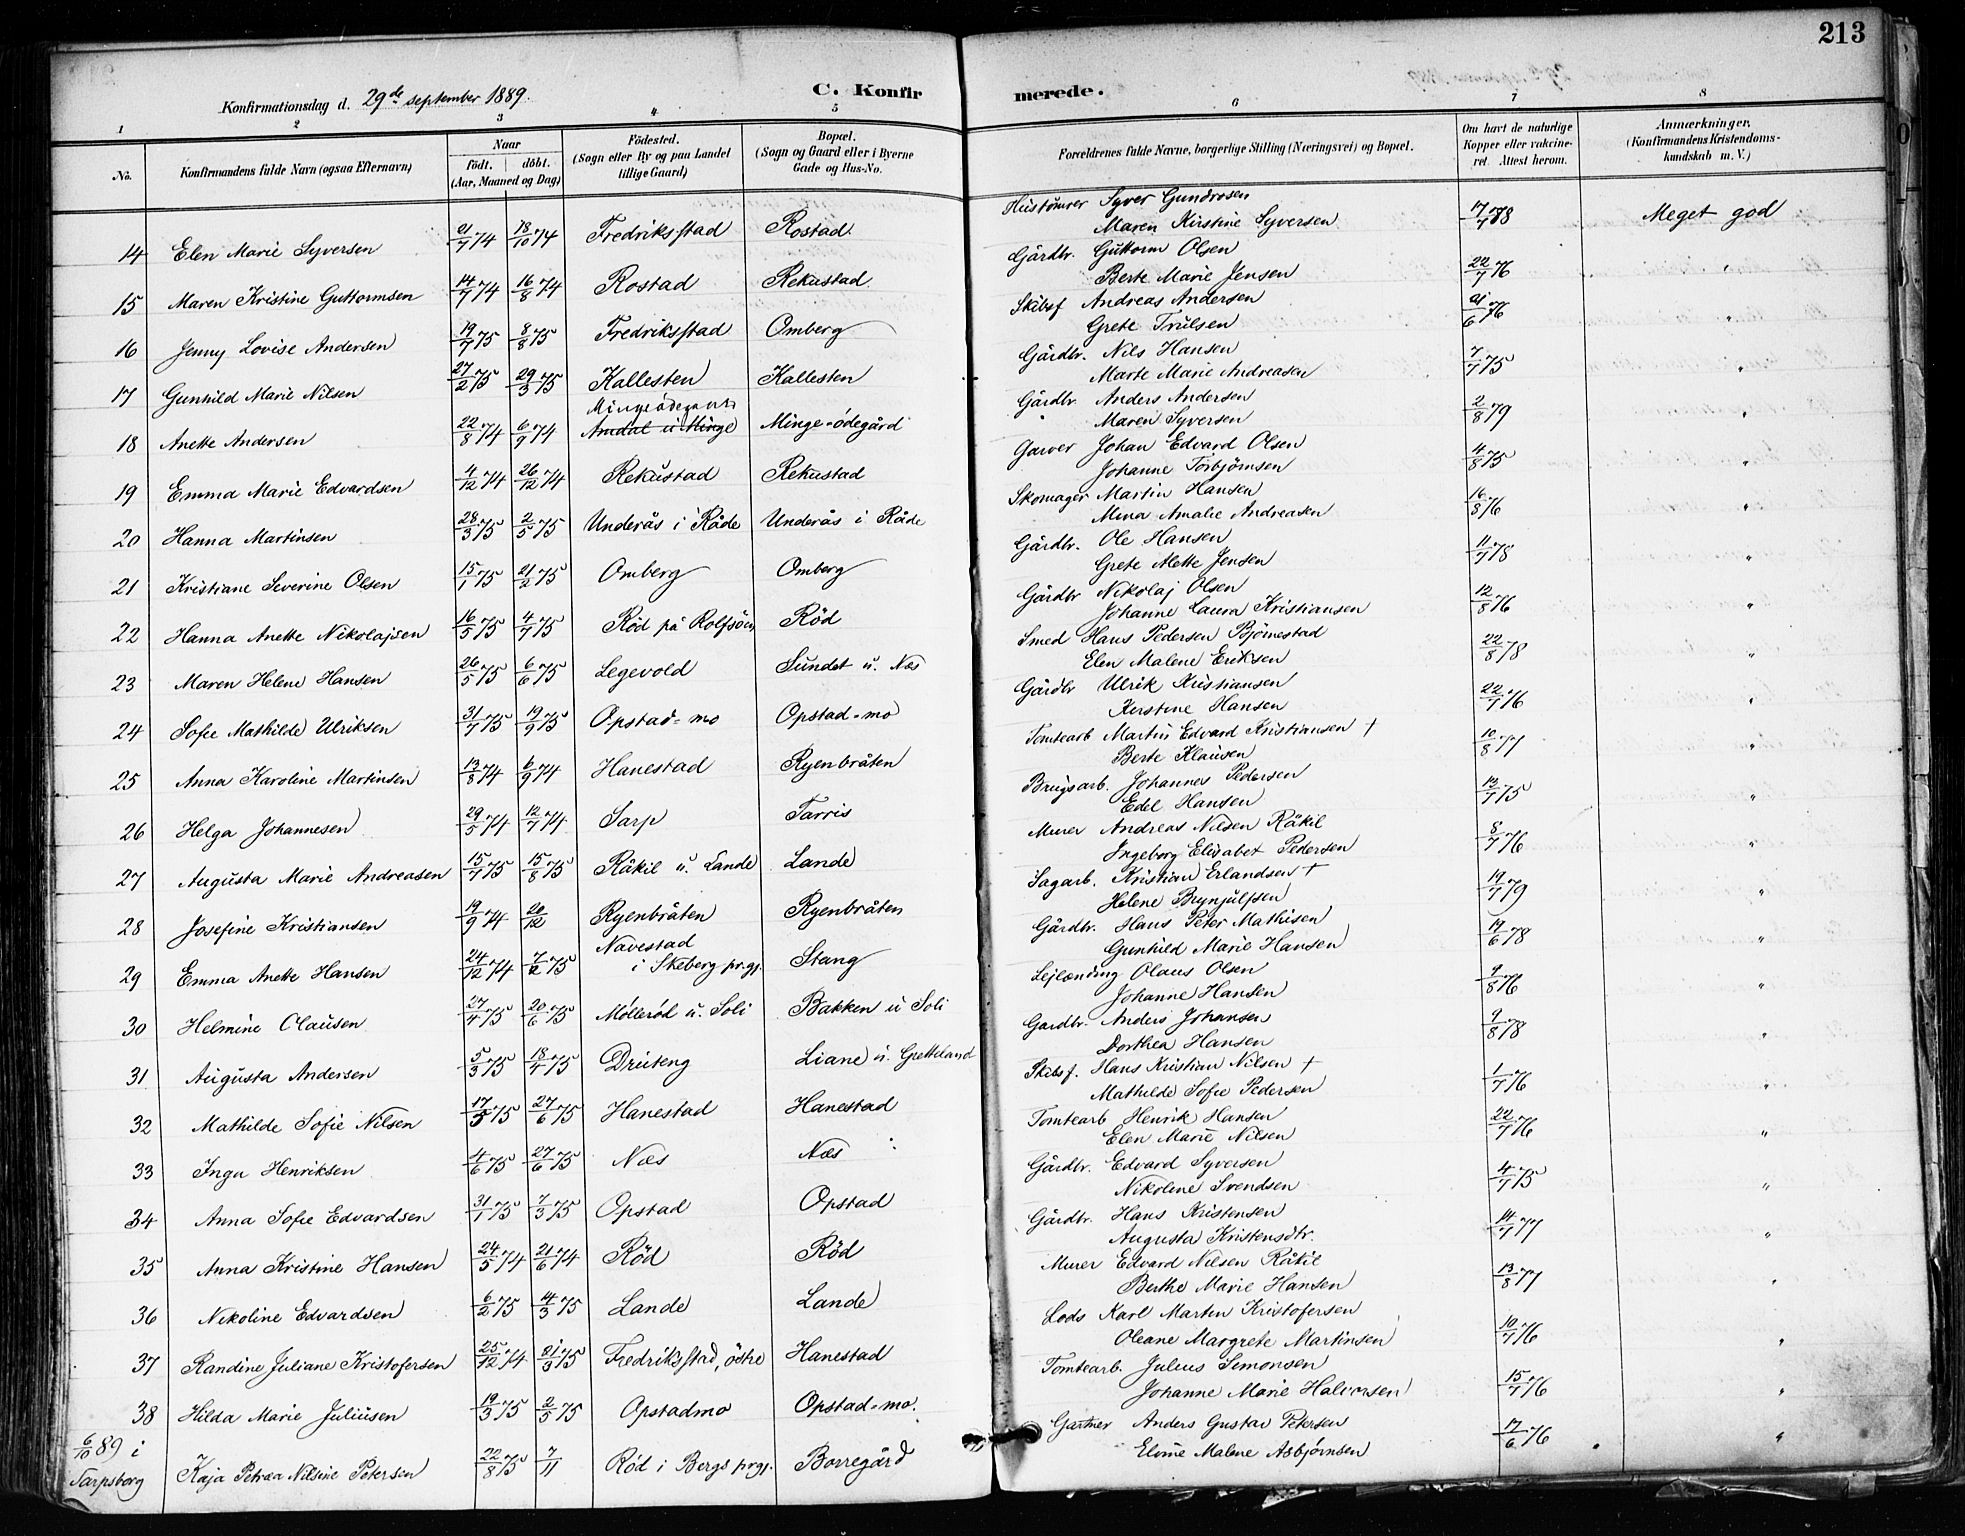 213
Konfirmationsdag d. 29de september 1889.
C. Konfirmerede.
1 2 3 4 5 6 7 8
No. | Konfirmandens fulde Navn (ogsaa Efternavn) | Naar født. døbt. (Aar, Maaned og Dag) | Fødested. (Sogn eller By og paa Landet tillige Gaard) | Bopæl. (Sogn og Gaard eller i Byerne Gade og Hus-No. | Forældrenes fulde Navne, borgerlige Stilling (Næringsvei) og Bopæl. | Om havt de naturlige Kopper eller vakcineret. Attest herom. | Anmærkninger. (Konfirmandens Kristendomskundskab m. V.)
14 Elen Marie Syversen 21/7 74 18/10 74 Fredriksstad Rostad Hustømrer Syver Gundrosen Maren Kirstine Syversen 17/7 78 Meget god
15 Maren Kristine Guttormsen 14/7 74 16/8 74 Rostad Rekustad Gårdbr. Guttorm Olsen Berte Marie Jensen 22/7 76 "
16 Jenny Lovise Andersen 19/7 75 8/8 75 Fredriksstad Omberg Skibsf Andreas Andersen Grete Trulsen 21/6 76 "
17 Gunhild Marie Nilsen 27/2 75 29/3 75 Kallesten Kallesten Gårdbr. Nils Hansen Marte Marie Andreasen 7/7 75 "
18 Anette Andersen 22/8 74 6/9 74 Mingeødegård Amdal u. Minge Minge-ödegård Gårdbr. Anders Andersen Maren Syversen 2/8 79 "
19 Emma Marie Edvardsen 4/12 74 26/12 74 Rekustad Rekustad Garver Johan Edvard Olsen Johanne Torbjørnsen 4/8 75 "
20 Hanna Martinsen 28/3 75 2/5 75 Underås i Råde Underås i Råde Skomager Martin Hansen Mina Amalie Andreasen 16/8 76 "
21 Kristiane Severine Olsen 15/1 75 21/2 75 Omberg Omberg Gårdbr. Ole Hansen Grete Mette Jensen 11/7 78 "
22 Hanna Anette Nikolajsen 16/5 75 4/7 75 Röd på Rolfsöen Röd Gårdbr Nikolaj Olsen Johanne Laura Kristiansen 12/8 76 "
23 Maren Helene Hansen 26/5 75 6/6 75 Legevold Sundet u. Næs Smed Hans Pedersen Bjørnestad Elen Malene Eriksen 22/8 78 "
24 Sofie Mathilde Ulriksen 31/7 75 19/9 75 Opstad-mo Opstad-mo Gårdbr Ulrik Kristiansen Kirstine Hansen 22/7 76 "
25 Anna Karoline Martinsen 13/8 74 6/9 74 Hanestad Ryenbråten Tomtearb Martin Edvard Kristiansen + Berte Klausen 10/8 77 "
26 Helga Johannesen 29/5 74 12/7 74 Sarp Tarris Brugsarb. Johannes Pedersen Edel Hansen 12/7 75 "
27 Augusta Marie Andreasen 15/7 75 15/8 75 Råkil u. Lande Lande Murer Andreas Nilsen Råkil Ingeborg Elisabet Pedersen 8/7 76 "
28 Josefine Kristiansen 19/9 74 20/12 Ryenbråten Ryenbråten Sagarb. Kristian Erlandsen + Helene Brynjulfsen 19/7 79 "
29 Emma Anette Hansen 24/12 74 7/2 75 Navestad i Skeberg prgj. Stang Gårdbr. Hans Peter Mathisen Gunhild Marie Hansen 14/6 78 "
30 Helmine Clausen 27/4 75 20/6 75 Møllerød u. Soli Bakken u Soli Lejlænding Olaus Olsen Johanne Hansen 9/8 76 "
31 Augusta Andersen 5/3 75 18/4 75 Drüteng Liane u. Gretteland Gardbr. Anders Johansen Dorthea Hansen 9/8 78 "
32 Mathilde Sofie Nilsen 17/5 75 27/6 75 Hanestad Hanestad Skibsf. Hans Kristian Nilsen + Mathilde Sofie Pedersen 1/7 76 "
33 Inga Henriksen 4/6 75 27/6 75 Næs Næs Tomtearb Henrik Hansen Elen Marie Nilsen 22/7 76 "
34 Anna Sofie Edvardsen 31/1 75 7/3 75 Opstad Opstad Gårdbr. Edvard Syversen Nikoline Svendsen 4/7 75 "
35 Anna Kristine Hansen 24/5 74 21/6 74 Röd Röd Gårdbr. Hans Kristensen Augusta Kristensdtr. 14/7 77 "
36 Nikoline Edvardsen 6/2 75 14/3 75 Lande Lande Murer Edvard Nilsen Råkil Berthe Marie Hansen 13/8 77 "
37 Randine Juliane Kristofersen 25/12 74 21/3 75 Fredriksstad, östre Hanestad Lods Karl Martin Kristofersen Oleane Margrete Martinsen 10/7 76 "
38 Hilda Marie Juliusen 19/3 75 2/5 75 Opstadmo Opstad-mo. Tomtearb. Julius Simonsen Johanne Marie Halvorsen 15/7 76 "
6/10 89 i Sarpsborg Kaja Petrea Nilsine Petersen 22/8 75 7/11 Rød i Bergs prgj. Borregård Gartner Anders Gustav Petersen Elvine Malene Asbjørnsen 17/6 76 "